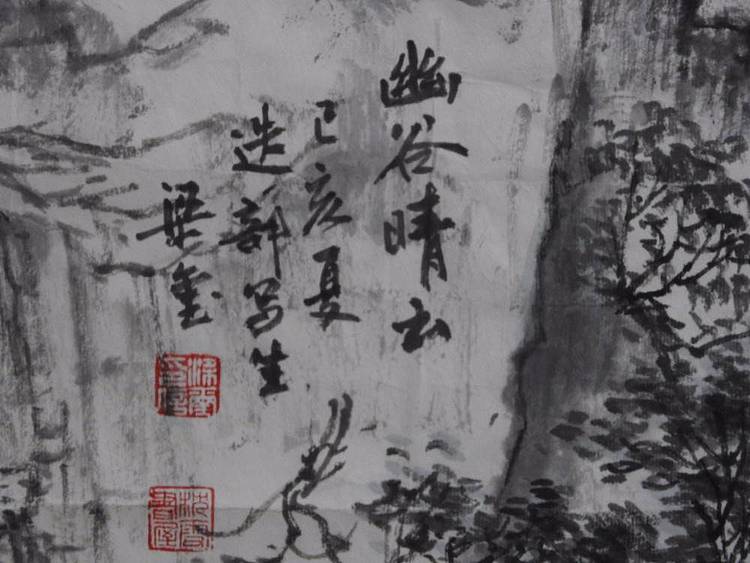 幽谷晴云
己亥夏
迭部写生
梁玺